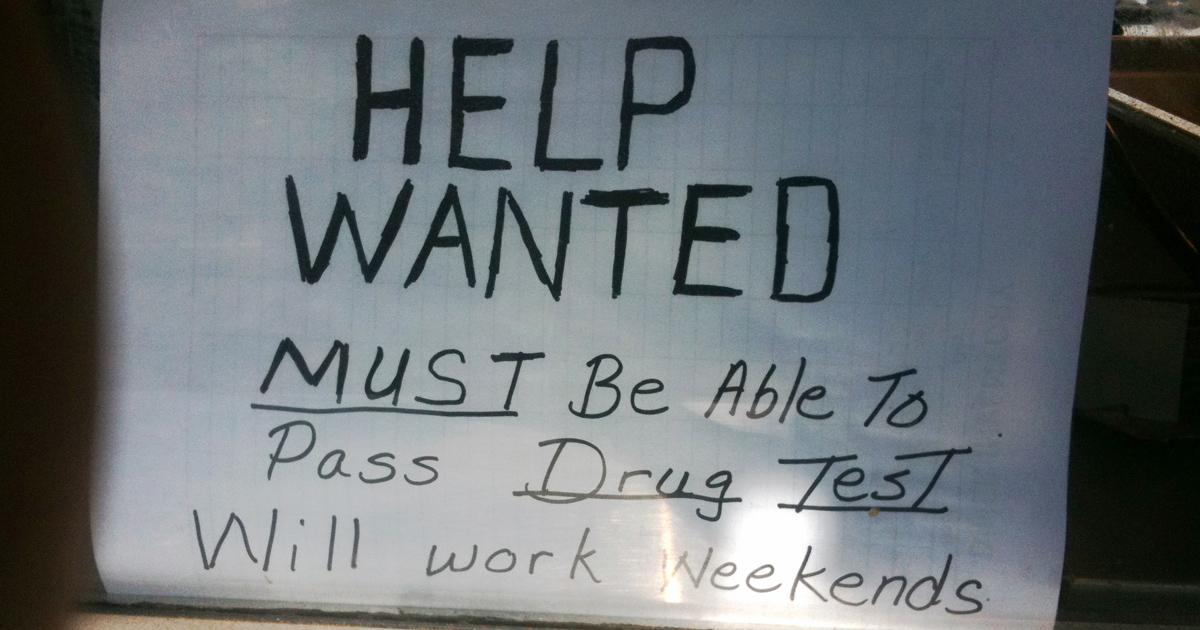 HELP
WANTED
MUST Be Able To
Pass Drug Test
Will work Weekends